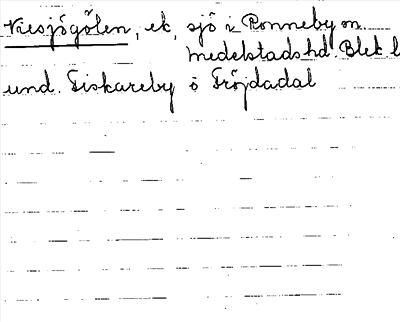 Kresjögölen, ek, sjö i Ronneby sn.
Medelstads hd. Blek l
und. Fiskareby ö Fröjdadal